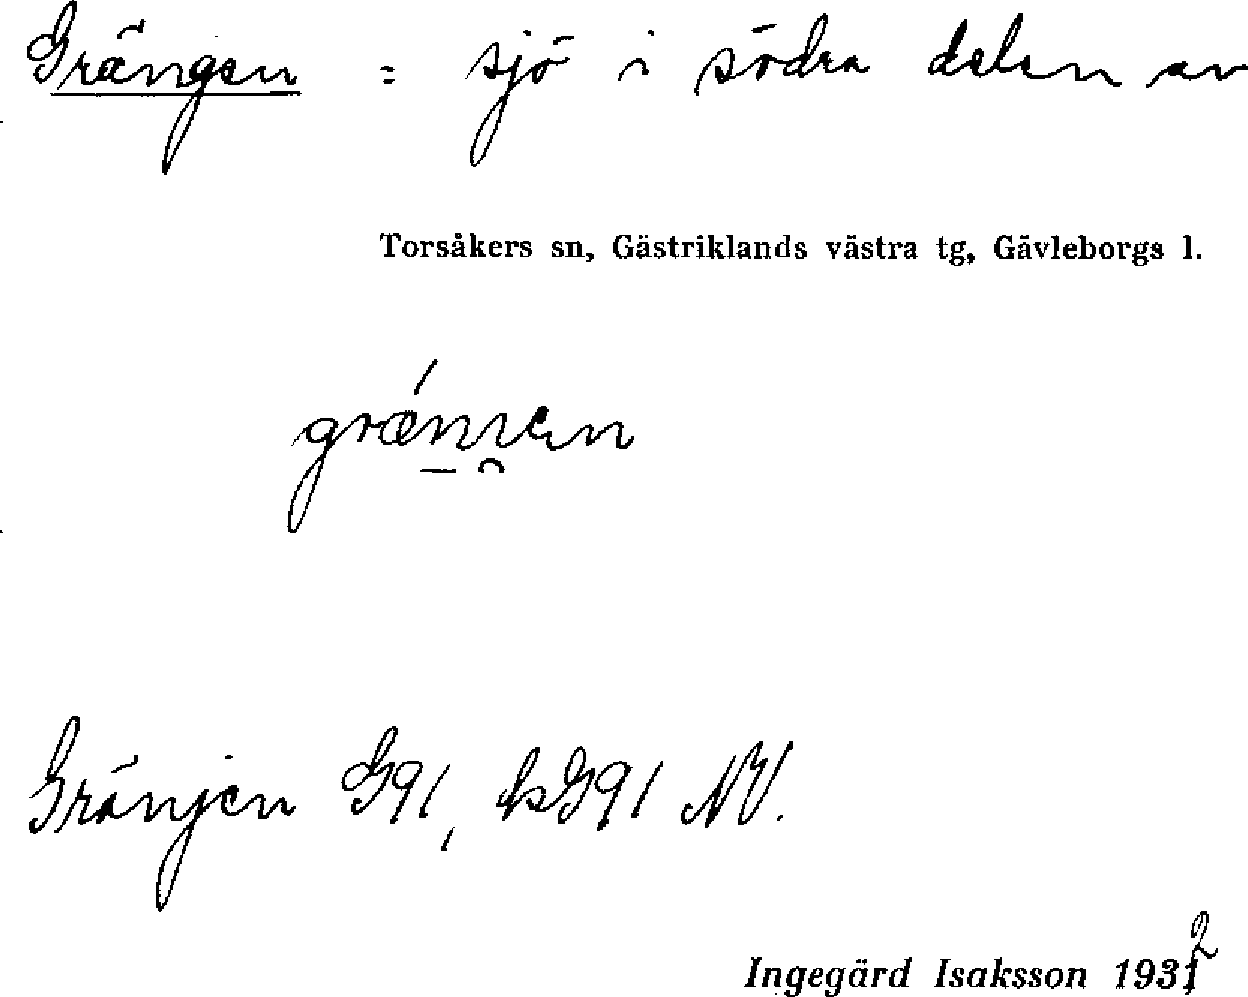 Grängen = sjö i södra delen av
Torsåkers sn, Gästriklands västra tg, Gävleborgs l.
Gränjen G91, ksG91 NV.
Ingegärd Isaksson 1932